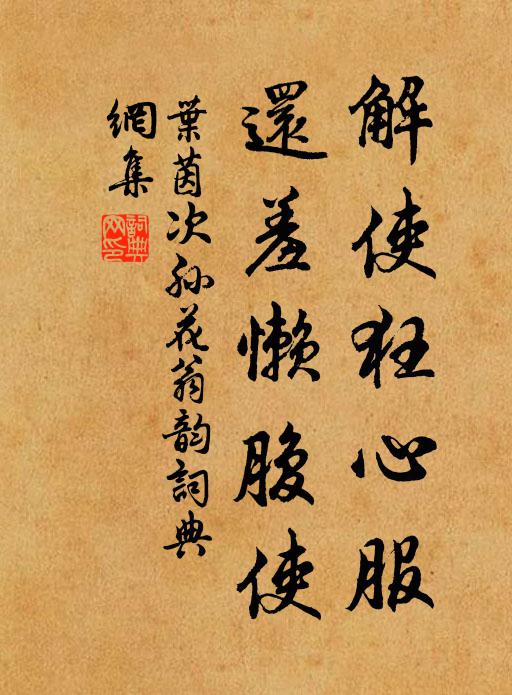 解使狂心服
還羞懶腹使
葉茵次孫花翁韵詞典
網集
詞典網印